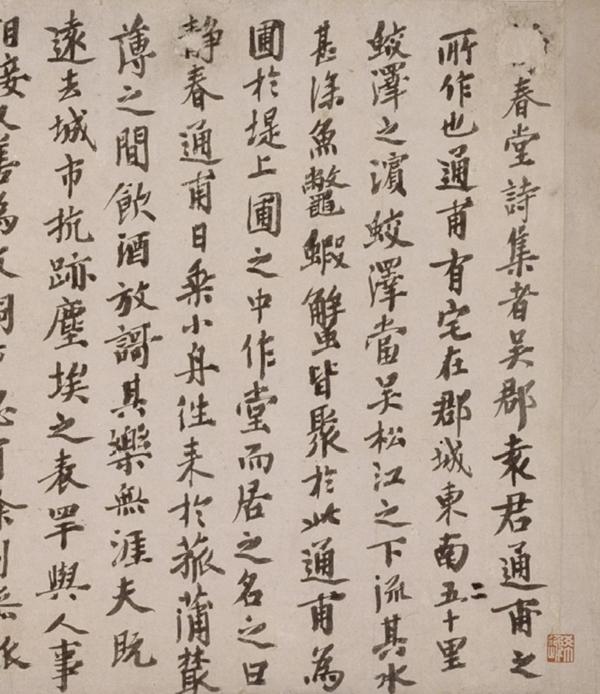 春堂詩集者吳郡袁君通甫之
所作也通甫有宅在郡城東南五十里
蛟澤之濱蛟澤當吳松江之下流其水
甚深魚鼈蝦蟹皆聚於此通甫為
圃於堤上圃之中作堂而居之名之曰
靜春通甫日乘小舟往來於菰蒲叢
薄之間飲酒放謌其樂無涯夫既
遠去城市抗跡塵埃之表罕與人事
相接又善為